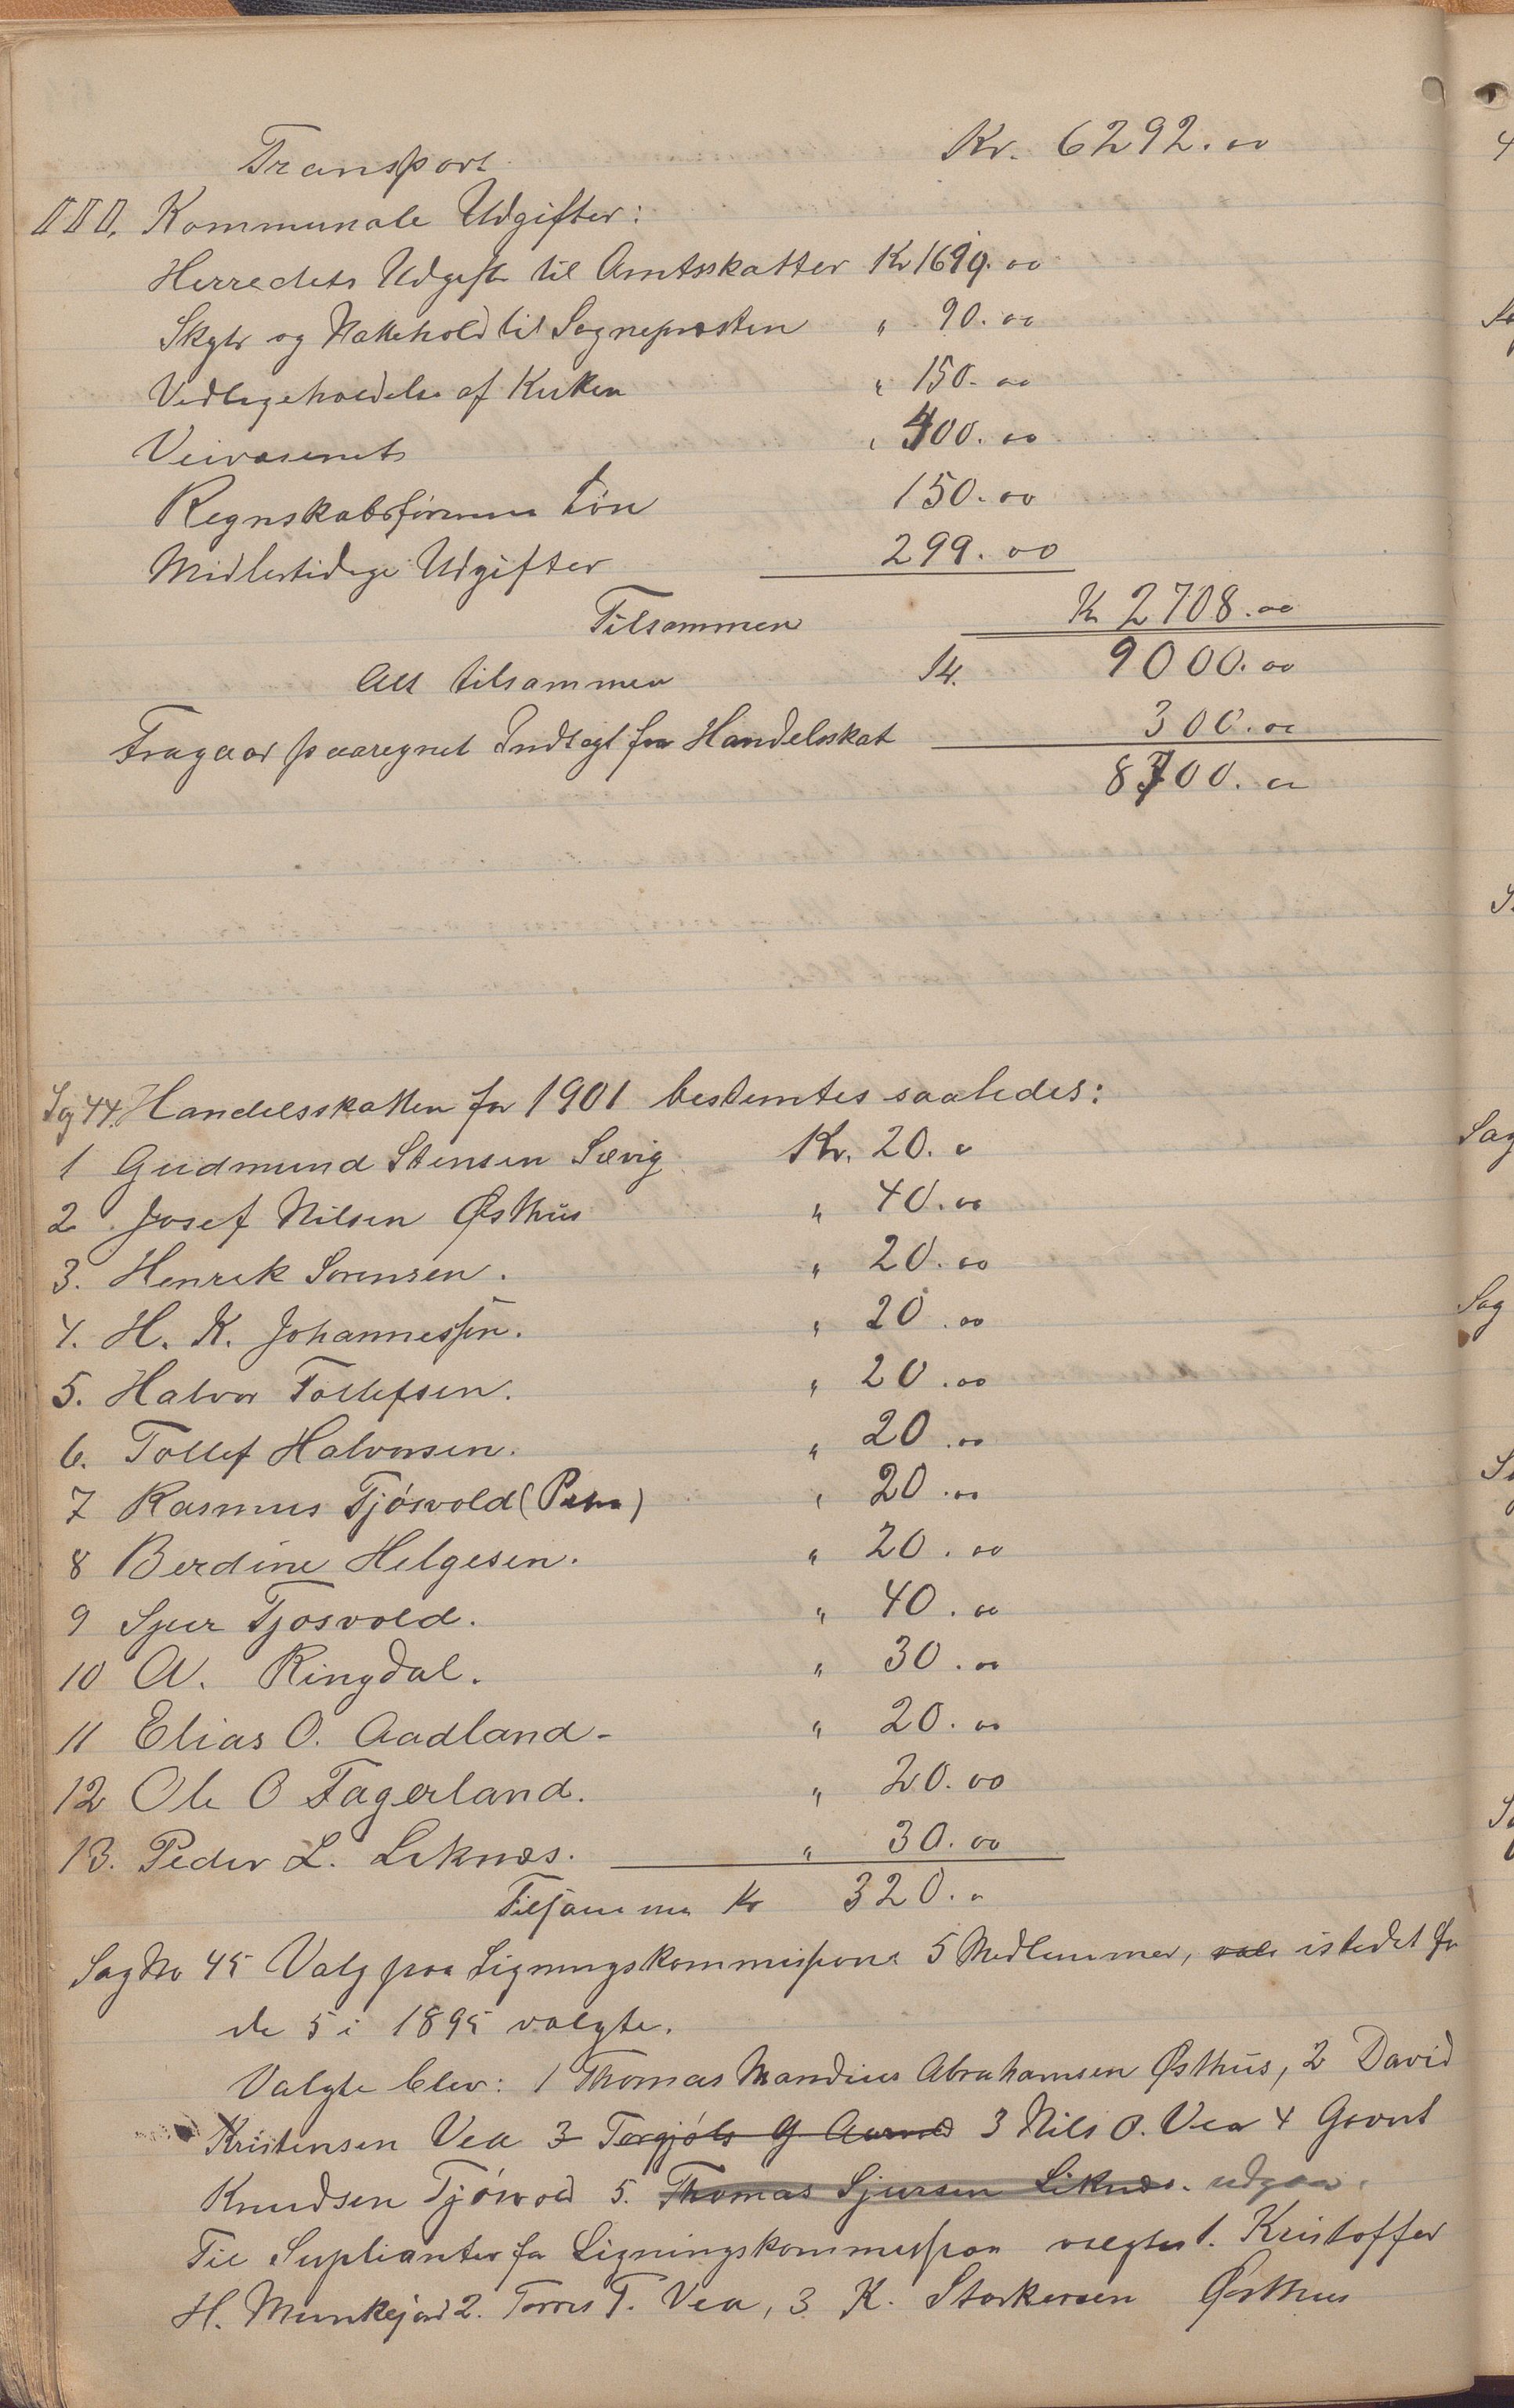 Transport Kr. 6292.00
III. Kommunale Udgifter:
Herredets Udgift til Amtsskatter Kr 1619.00
Skyds og Hestehold til Sognepresten " 90.00
Vedligeholdelse af Kirken " 150.00
Veivæsenet " 400.00
Regnskabsførerens Løn 150.00
Midlertidige Udgifter 299.00
Tilsammen Kr 2708.00
Alt tilsammen Kr. 9000.00
Fragaar paaregnet Indtægt fra Handelsskat 300.00
8700.00
Sag 44. Handelsskatten for 1901 bestemtes saaledes:
1 Gudmund Stensen Sævig Kr. 20.0
2 Josef Nilsen Østhus " 40.00
3. Henrik Sørensen. " 20.00
4. H. K. Johannessen. " 20.00
5. Halvor Tollefsen. " 20.00
6. Tollef Halvorsen. " 20.00
7 Rasmus Tjøsvold " 20.00
8 Berdine Helgesen. " 20.00
9 Sjur Tjosvold. " 40.00
10 A. Ringdal. " 30.00
11 Elias O. Aadland - " 20.00
12 Ole O Fagerland. " 20.00
13. Peder L. Liknæs. " 30.00
Tilsammen Kr 320.0
Sag No 45 Valg paa Ligningskommission 5 Medlemmer, istedet for
de 5 i 1895 valgte.
Valgte blev: 1 Thomas Mandius Abrahamsen Østhus, 2 David
Kristensen Vea 3 3 Nils O. Vea 4 Govert
Knudsen Tjøsvold 5. Thomas Sjursen Liknæs. udgaar.
Til Suplianter for Ligningskommission valgtes 1. Kristoffer
H. Munkejord 2. Torres T. Vea, 3 K. Storkersen Østhus